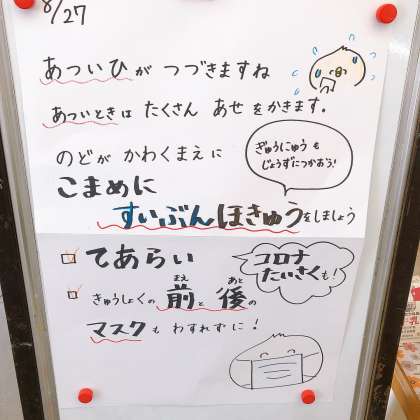 8/27
あついひが つづきますね
あついときは たくさん あせをかきます.
のどが かわくまえに
ぎゅうにゅうも
じょうずにつかおう!
こまめに
すいぶんほきゅうをしましょう
てあらい
コロナ
たいさくも!
きゅうしょくの 前まえと 後あとの
マスクも わすれずに!